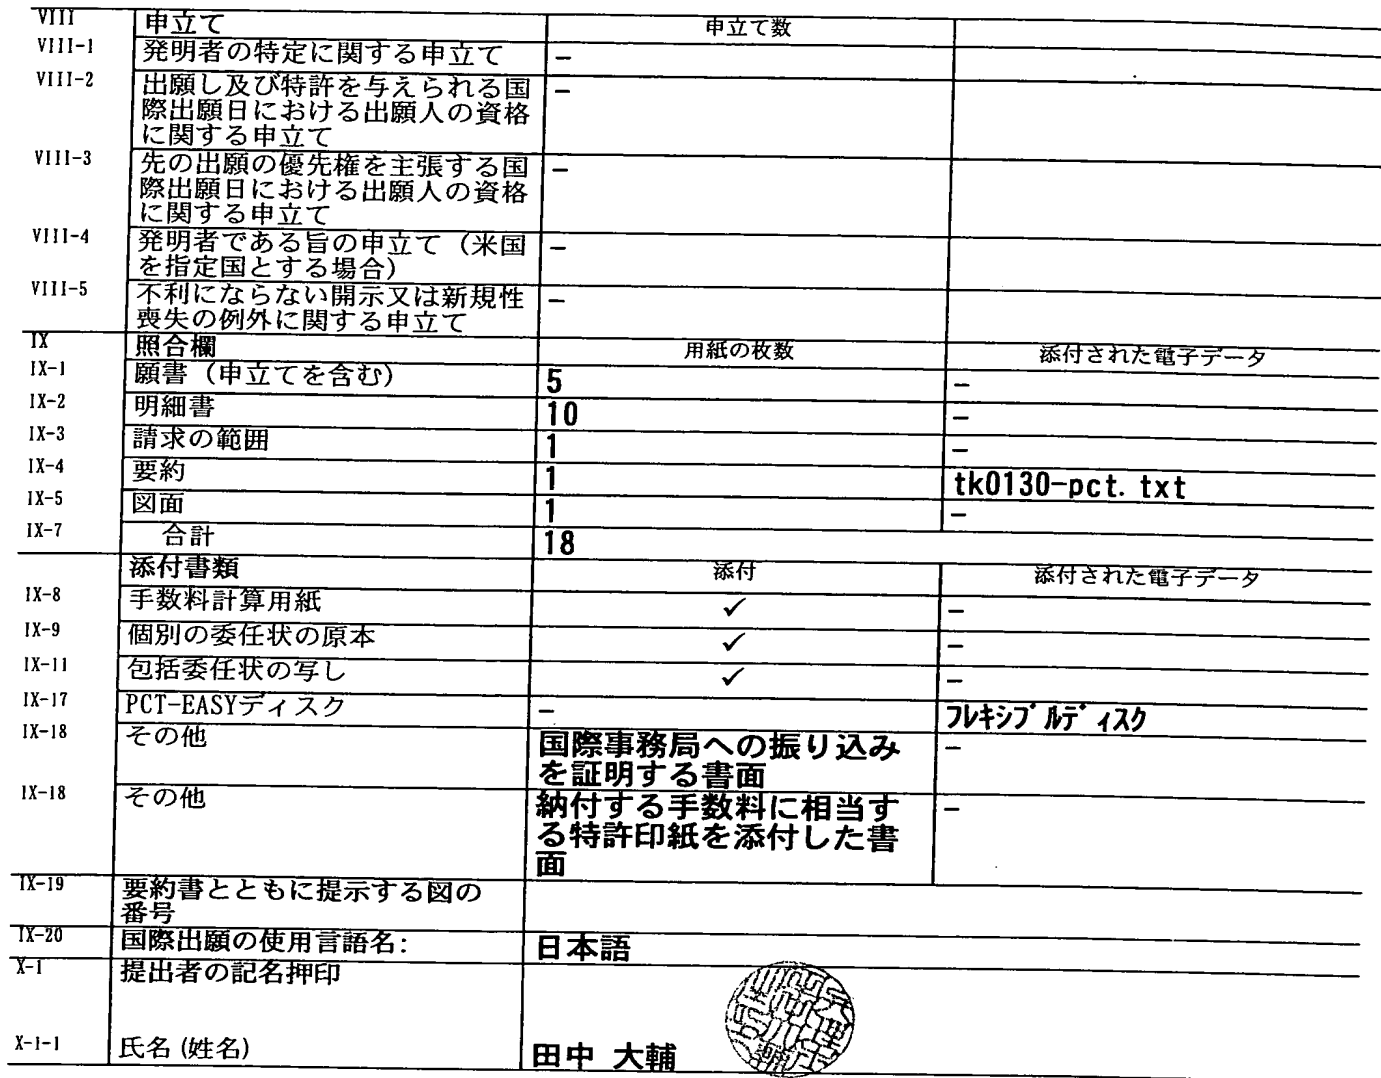 VIII 申立て 申立て数
VIII-1 発明者の特定に関する申立て –
VIII-2 出願し及び特許を与えられる国 –
際出願日における出願人の資格
に関する申立て
VIII-3 先の出願の優先権を主張する国 –
際出願日における出願人の資格
に関する申立て
VIII-4 発明者である旨の申立て（米国 –
を指定国とする場合）
VIII-5 不利にならない開示又は新規性 –
喪失の例外に関する申立て
IX 照合欄 用紙の枚数 添付された電子データ
IX-1 願書（申立てを含む） 5 –
IX-2 明細書 10 –
IX-3 請求の範囲 1 –
IX-4 要約 1 tk0130-pct. txt
IX-5 図面 1 –
IX-7 合計 18
添付書類 添付 添付された電子データ
IX-8 手数料計算用紙 ✓ –
IX-9 個別の委任状の原本 ✓ –
IX-11 包括委任状の写し ✓ –
IX-17 PCT-EASYディスク – ﾌﾚｷｼﾌﾞﾙﾃﾞｨｽｸ
IX-18 その他 国際事務局への振り込み –
を証明する書面
IX-18 その他 納付する手数料に相当す –
る特許印紙を添付した書
面
IX-19 要約書とともに提示する図の
番号
IX-20 国際出願の使用言語名: 日本語
X-1 提出者の記名押印
X-1-1 氏名(姓名) 田中 大輔